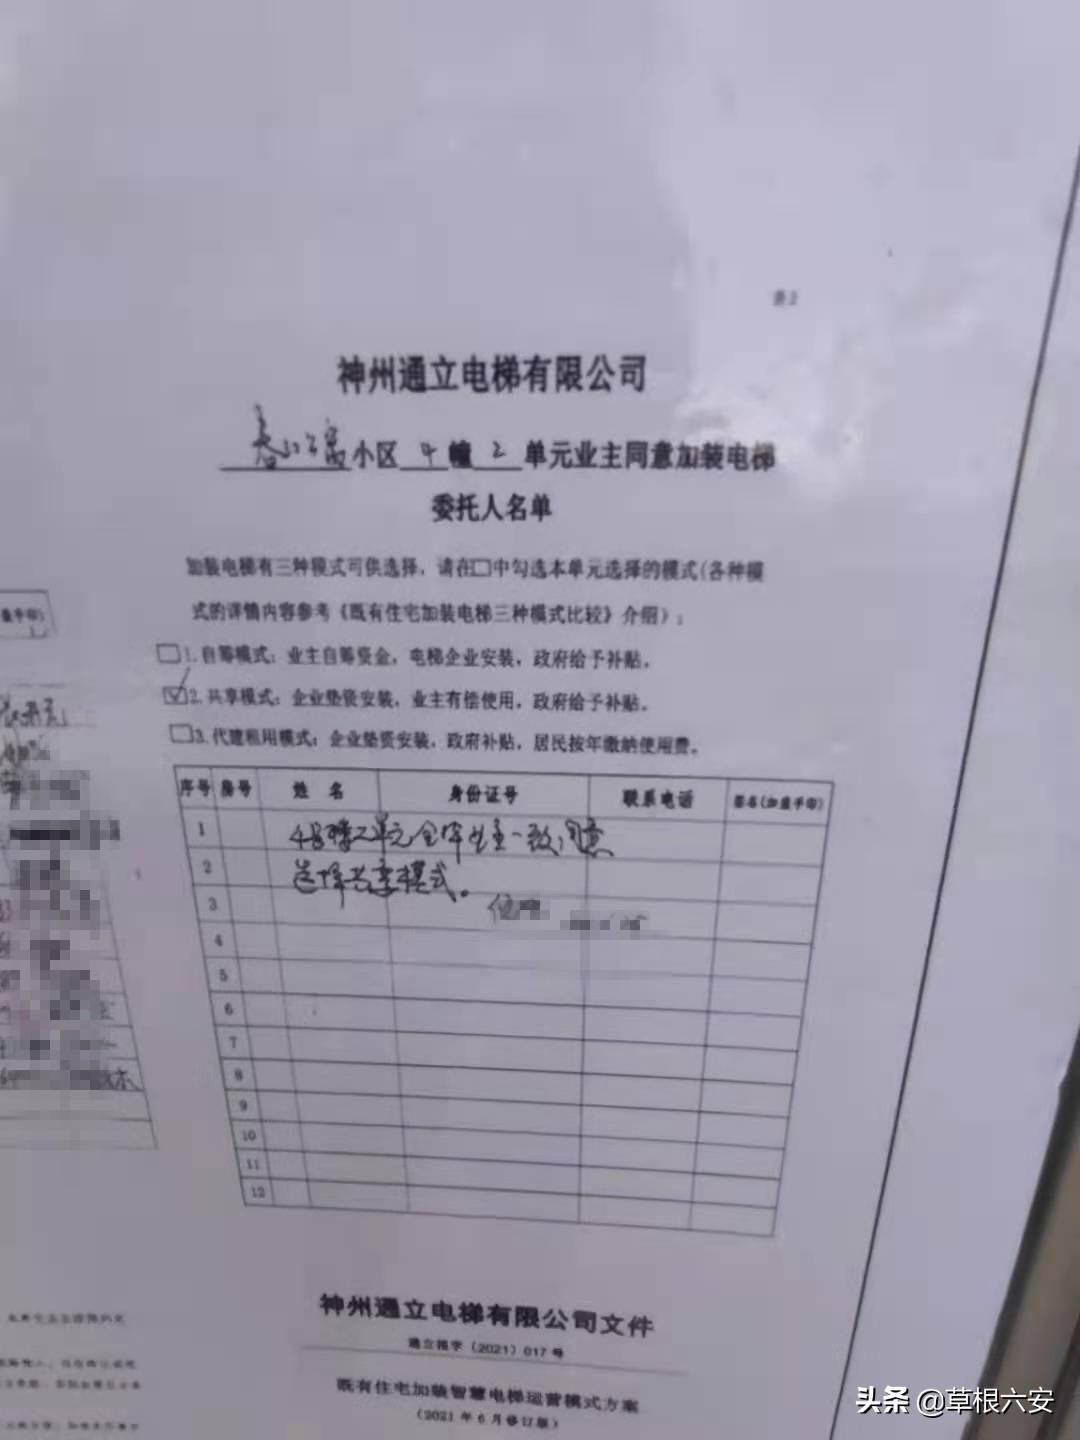 表2
神州通立电梯有限公司
小区 4 幢 2 单元业主同意加装电梯
委托人名单
加装电梯有三种模式可供选择，请在□中勾选本单元选择的模式（各种模
式的详情内容参考《既有住宅加装电梯三种模式比较》介绍）：
□1.自筹模式：业主自筹资金，电梯企业安装，政府给予补贴。
☑2.共享模式：企业垫资安装，业主有偿使用，政府给予补贴。
□3.代建租用模式：企业垫资安装，政府补贴，居民按年缴纳使用费。
序号 房号 姓 名 身份证号 联系电话 签名(加盖手印)
1 4号楼2单元全体业主一致同意
2 选择共享模式。
3
4
5
6
7
8
9
10
11
12
神州通立电梯有限公司文件
通立梯字（2021）017号
既有住宅加装智慧电梯运营模式方案
（2021年6月修订版）
头条 @草根六安